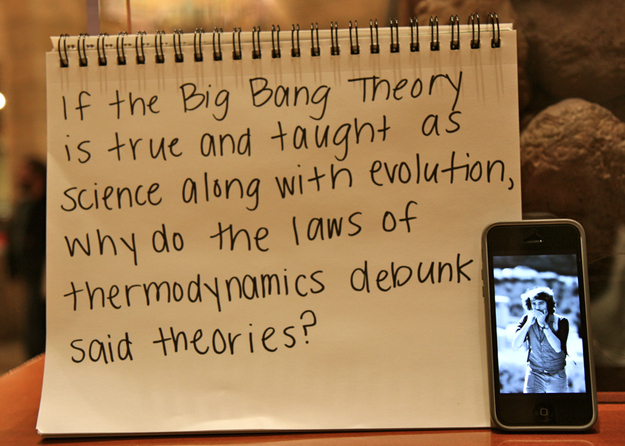 If the Big Bang Theory
is true and taught as
science along with evolution,
why do the laws of
thermodynamics debunk
said theories?